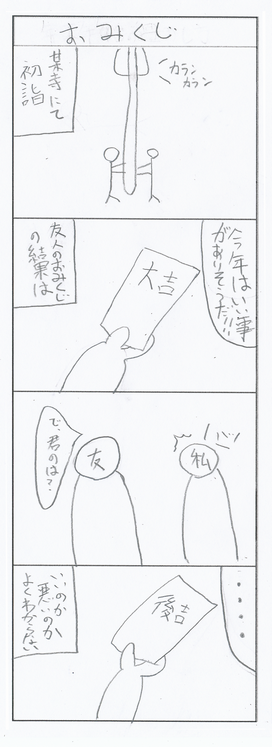 おみくじ
某寺にて
初詣
カラン
カラン
今年はいい事
がありそうだ!!!
大吉
友人のおみくじ
の結果は
バッ
私
友
で、君のは?
・・・・
吉
いいのか
悪いのか
よくわからない